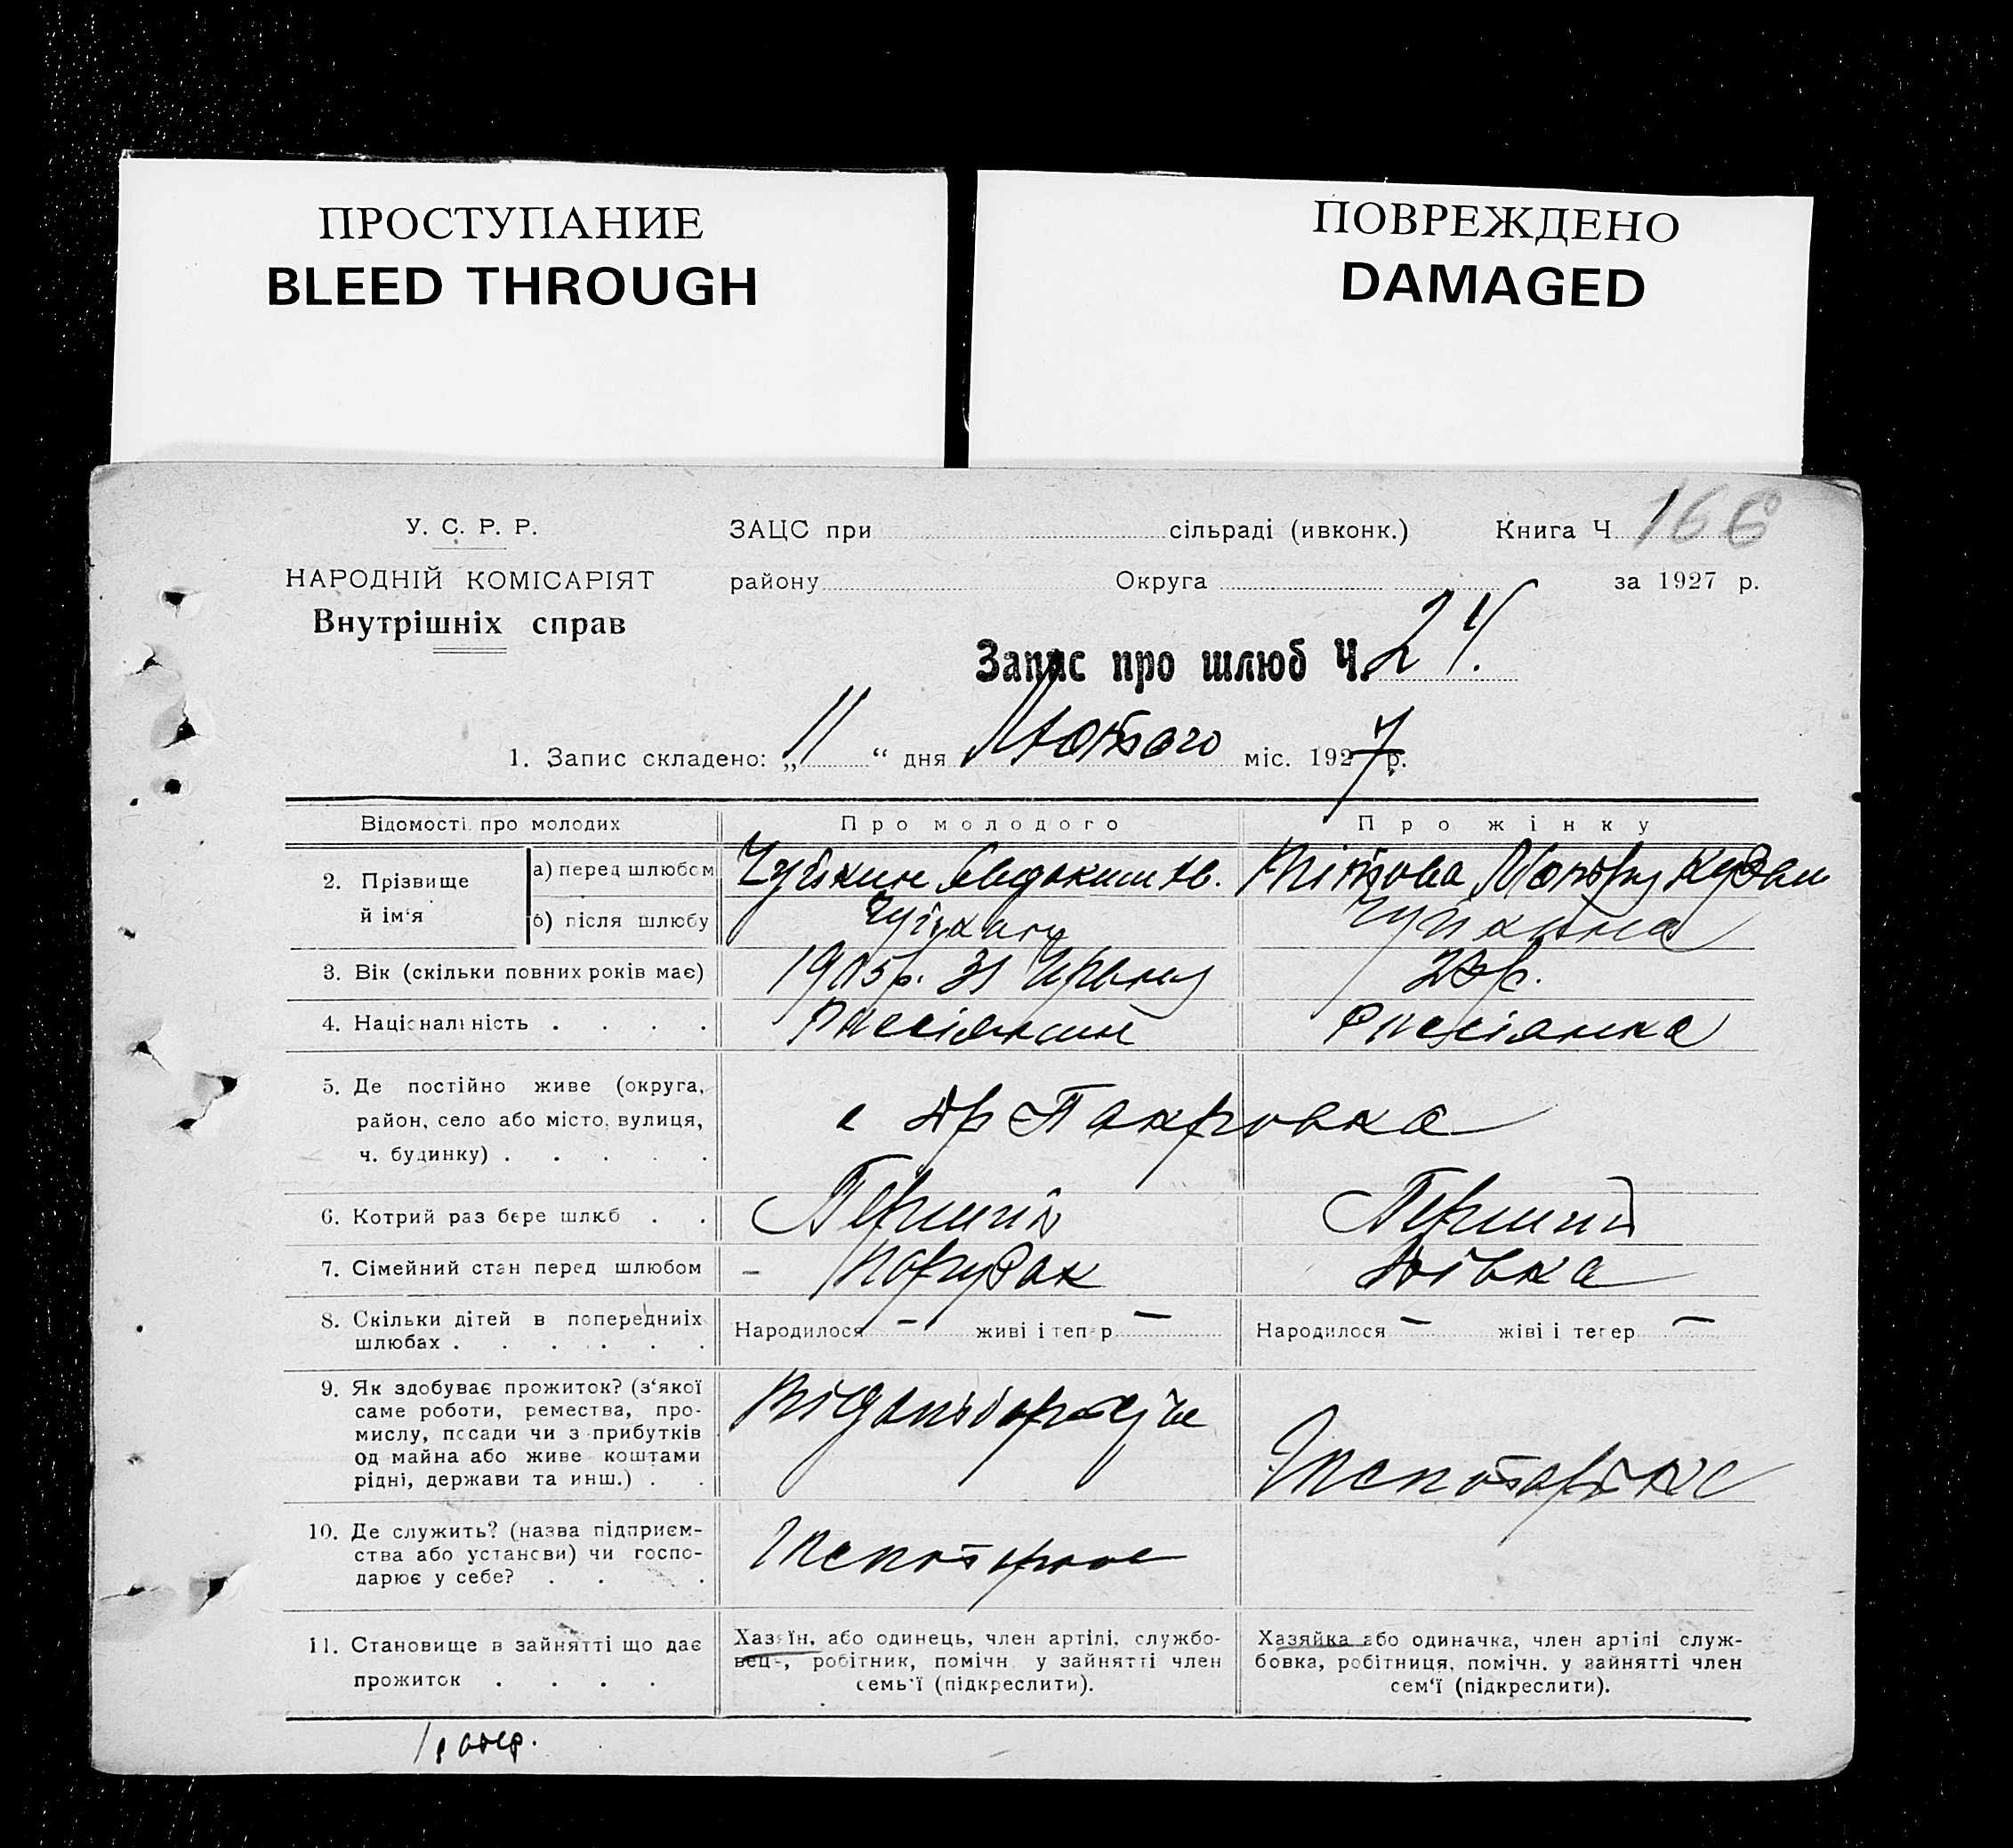 ПРОСТУПАНИЕ
BLEED THROUGH
ПОВРЕЖДЕНО
DAMAGED
У. С. Р. Р.
НАРОДНІЙ КОМІСАРІЯТ
Внутрішніх справ
ЗАЦС при сільраді (ивконк.) Книга Ч 166
району Округа за 1927 р.
Запис про шлюб Ч. 24.
1. Запис складено: „ 11 “ дня Лютого міс. 1927 р.
Відомості про молодих Про молодого Про жінку
2. Прізвище й ім‘я
а) перед шлюбом Чуйкин
б) після шлюбу Чуйкина
3. Вік (скільки повних років має) 1905р. 31
4. Національність . . . . Россіянин Россіянка
5. Де постійно живе (округа,
район, село або місто, вулиця,
ч. будинку) . . . . .
Покровка
6. Котрий раз бере шлюб . . Перший Перший
7. Сімейний стан перед шлюбом – Парубок Дівка
8. Скільки дітей в попередниіх
шлюбах . . . . . .
Народилося – живі і тепер –
Народилося – жіві і тепер –
9. Як здобуває прожиток? (з‘якої
саме роботи, ремества, про-
мислу, посади чи з прибутків
од майна або живе коштами
рідні, держави та инш.) . .
10. Де служить? (назва підприєм-
ства або установи) чи госпо-
дарює у себе? . . .
11. Становище в зайнятті що дає
прожиток . . . .
Хазяїн, або одинець, член артілі, службо-
вець, робітник, помічн. у зайнятті член
семь‘ї (підкреслити).
Хазяйка або одиначка, член артілі служ-
бовка, робітниця, помічн. у зайнятті член
сем‘ї (підкреслити).